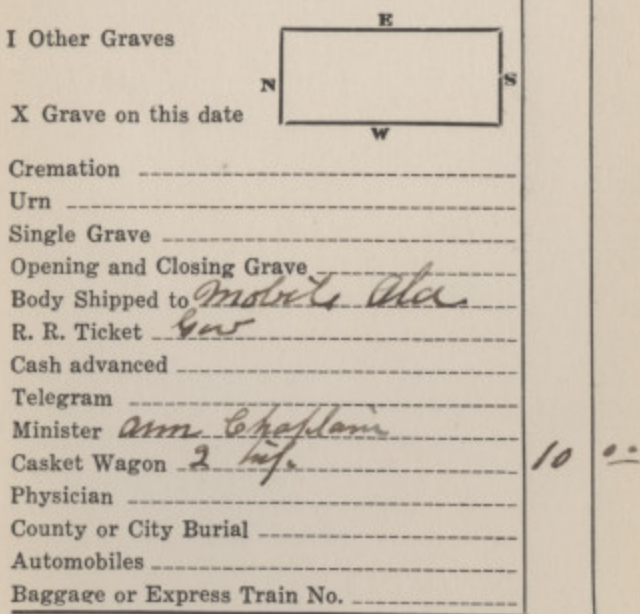 E
I Other Graves
N
S
X Grave on this date
W
Cremation
Urn
Single Grave
Opening and Closing Grave
Body Shipped to Mobile Ala
R. R. Ticket Gov
Cash advanced
Telegram
Minister Arm Chaplain
Casket Wagon 2 10 00
Physician
County or City Burial
Automobiles
Baggage or Express Train No.